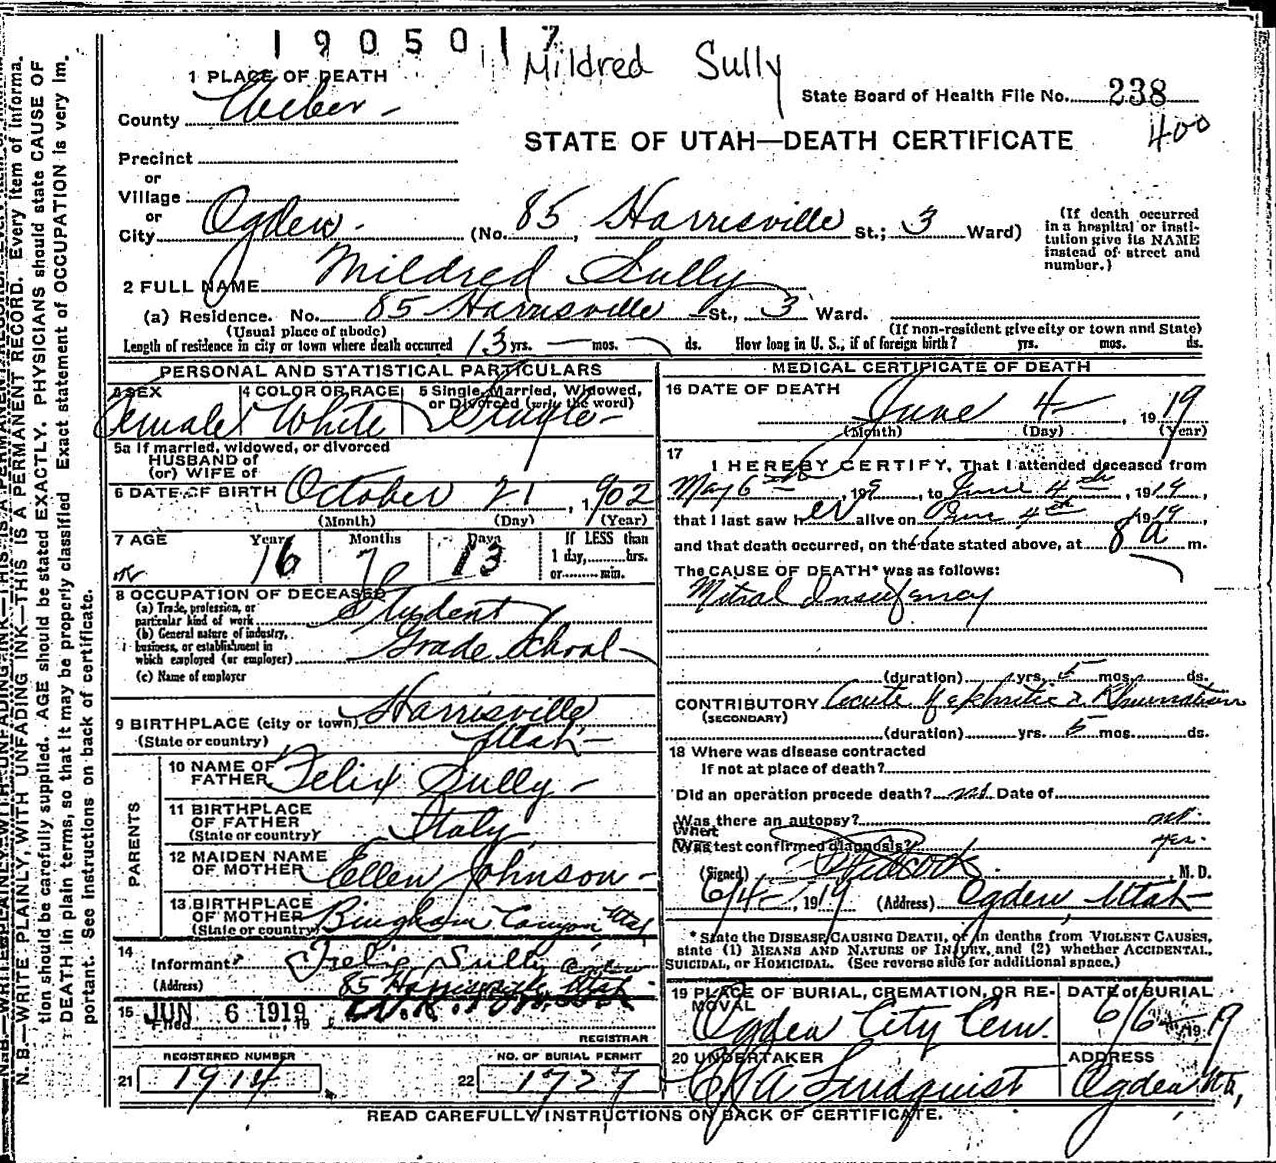 1905017
Mildred Sully
1 PLACE OF DEATH
County Weber
State Board of Health File No. 238
400
STATE OF UTAH—DEATH CERTIFICATE
Precinct
or
Village
or
City Ogden (No. 85 Harrisville St.; 3 Ward)
(If death occurred in a hospital or insti-
tution give its NAME
instead of street and
number.)
2 FULL NAME Mildred Sully
(a) Residence. No. 85 Harrisville St., 3 Ward.
(Usual place of abode)
(If non-resident give city or town and State)
Length of residence in city or town where death occurred 13 yrs. — mos. — ds. How long in U. S., if of foreign birth? yrs. mos. ds.
PERSONAL AND STATISTICAL PARTICULARS
3 SEX
4 COLOR OR RACE
5 Single, Married, Widowed,
or Divorced (write the word)
Female White Single
5a If married, widowed, or divorced
HUSBAND of
(or) WIFE of
6 DATE OF BIRTH October 21, 1902
(Month) (Day) (Year)
7 AGE Years Months Days If LESS than
1 day, hrs.
or min.
16 7 13
8 OCCUPATION OF DECEASED
(a) Trade, profession, or
particular kind of work Student
(b) General nature of industry,
business, or establishment in
which employed (or employer) Grade School
(c) Name of employer
9 BIRTHPLACE (city or town) Harrisville
(State or country) Utah
PARENTS
10 NAME OF
FATHER Felix Sully
11 BIRTHPLACE
OF FATHER
(State or country) Italy
12 MAIDEN NAME
OF MOTHER Ellen Johnson
13 BIRTHPLACE
OF MOTHER
(State or country) Bingham Canyon Utah
14
Informant Felix Sully
(Address) 85 Harrisville, Utah
15 JUN 6 1919
Filed , 19
REGISTRAR
REGISTERED NUMBER
21 1914
NO. OF BURIAL PERMIT
22 1727
MEDICAL CERTIFICATE OF DEATH
16 DATE OF DEATH
June 4, 1919
(Month) (Day) (Year)
17
I HEREBY CERTIFY, That I attended deceased from
May 6, 1919, to June 4th, 1919,
that I last saw her alive on June 4th 1919,
and that death occurred, on the date stated above, at 8 a m.
The CAUSE OF DEATH* was as follows:
Mitral Insufency
(duration) yrs. 5 mos. ds.
CONTRIBUTORY Acute Nephritis & Rheumatism
(SECONDARY)
(duration) yrs. 5 mos. ds.
18 Where was disease contracted
If not at place of death?
Did an operation precede death? no Date of
Was there an autopsy? no
What
(Was test confirmed diagnosis? yes
(Signed) , M. D.
6/4, 1919 (Address) Ogden, Utah
* State the DISEASE CAUSING DEATH, or in deaths from VIOLENT CAUSES,
state (1) MEANS AND NATURE OF INJURY, and (2) whether ACCIDENTAL,
SUICIDAL, or HOMICIDAL. (See reverse side for additional space.)
19 PLACE OF BURIAL, CREMATION, OR RE-
MOVAL
Ogden City Cem.
DATE of BURIAL
6/6 1919
20 UNDERTAKER
Lindquist
ADDRESS
Ogden Ut,
READ CAREFULLY INSTRUCTIONS ON BACK OF CERTIFICATE.
N. B.—WRITE PLAINLY WITH UNFADING INK—THIS IS A PERMANENT RECORD. Every item of informa-
tion should be carefully supplied. AGE should be stated EXACTLY. PHYSICIANS should state CAUSE OF
DEATH in plain terms, so that it may be properly classified. Exact statement of OCCUPATION is very im-
portant. See instructions on back of certificate.